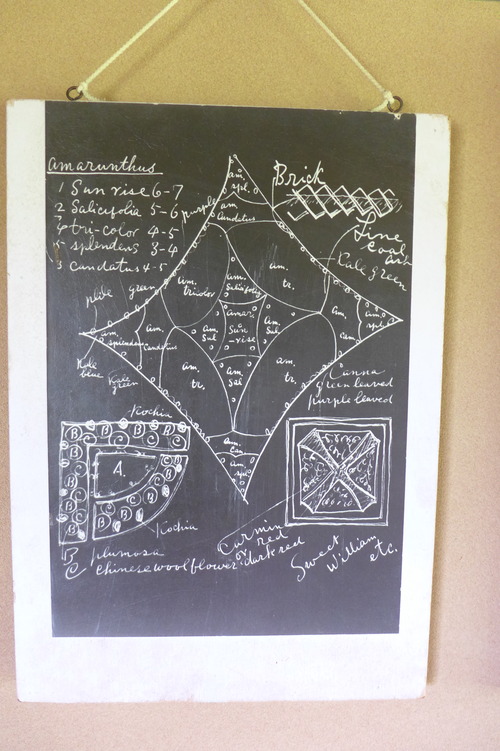 amarunthus
1 Sun rise 6-7
2 Salicifolia 5-6
4 tri-color 4-5
5 splendens 3-4
3 candatus 4-5
purple
am.
spl.
am
Candatus
Brick
Fine
Coal
Ash
Kale green
am.
tricolor
am.
Salicifolia
am.
tr.
green
am.
splendens
am.
Candatus
am.
Sal
amar.
Sun
-rise
am.
Sal
am.
Can
am.
spl
Kale
blue
Kale
green
am.
tr.
am.
Sal
am.
tr.
Canna
green leaved
purple leaved
am.
Can
am.
spl
Kochia
B C B C B C
A.
Kochia
B plumosa
C chinese woolflower
Carmin
red
or dark red
Sweet
William
etc.